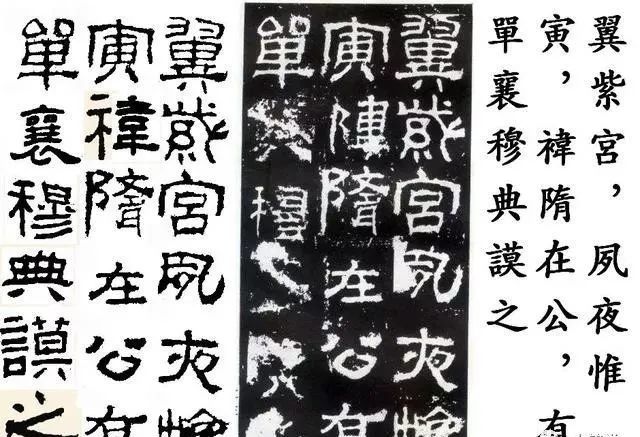 翼紫宮,夙夜惟
寅,禕隋在公,有
單襄穆典謨之
翼紫宮夙夜惟
寅禕隋在公有
單穆
翼紫宮夙夜惟
寅禕隋在公有
單襄穆典謨之